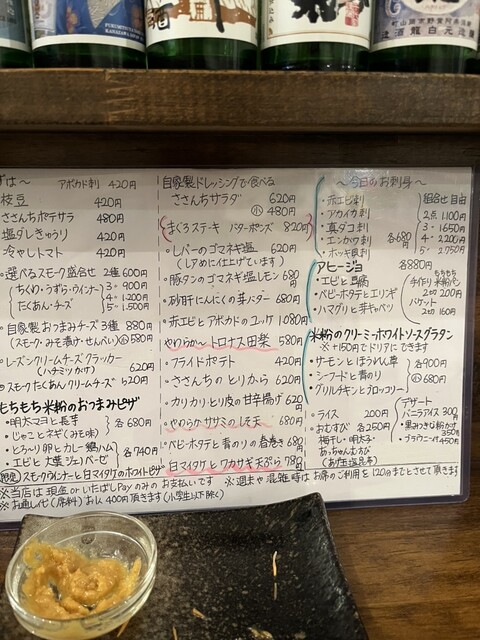 ずは〜 アボカド刺 420円
枝豆 420円
ささんちポテサラ 480円
塩ダレきゅうり 420円
冷やしトマト 420円
選べるスモーク盛合せ 2種 600円
ちくわ・うずら・ウインナー 3〃 900円
たくあん・チーズ 4〃 1,200円
5〃 1,500円
自家製おつまみチーズ3種 880円
(スモーク・みそ漬け・せんべい) 小 580円
レーズンクリームチーズクラッカー
(ハチミツかけ) 620円
スモークたくあんクリームチーズ 620円
もちもち米粉のおつまみピザ
・明太マヨと長芋
・じゃことネギ(みそ味) 各680円
・とろ〜り卵とカレー鶏ハム
・エビと大葉ジェノベーゼ 各740円
限定 スモークウインナーと白マイタケのホワイトピザ
自家製ドレッシングで食べる
ささんちサラダ 620円
小 480円
まぐろステーキ バターポンズ 820円
レバーのゴマネギ塩 620円
(レアめに仕上げています)
豚タンのゴマネギ塩レモン 680円
砂肝にんにくの芽バター 680円
赤エビとアボカドのユッケ 1080円
やわらか〜トロナス田楽 580円
フライドポテト 420円
ささんちのとりから 620円
カリカリとり皮の甘辛揚げ 620円
やわらかササミのしそ天 680円
ベビーホタテと青のりの春巻き 680円
白マイタケとワカサギ天ぷら 780円
〜今日のお刺身〜
・赤エビ刺
・アカイカ刺
・真ダコ刺
・エンガワ刺
・ホッキ貝刺
各680円
組合せ自由
2点 1100円
3〃 1650円
4〃 2200円
5〃 2,750円
アヒージョ 各880円
・エビと豆腐
・ベビーホタテとエリンギ
・ハマグリと芽キャベツ
もちもち
手作り米粉パン
2コ 200円
バケット
2コ 160円
米粉のクリーミーホワイトソースグラタン
※+150円でドリアにできます
・サーモンとほうれん草
・シーフードと青のり
・グリルチキンとブロッコリー
各900円
小 680円
・ライス 200円
おむすび 各250円
梅干し・明太子・
あっちゃんむすび
(あげ玉塩昆布)
デザート
バニラアイス 300円
・黒みつきな粉かけ 350円
・ブラウニー 450円
※当店は現金orいたばしPayのみのお支払いです ※週末や混雑時はお席のご利用を120分までとさせて頂きます
※お通し代(席料)お1人400円頂きます(小学生以下除く)